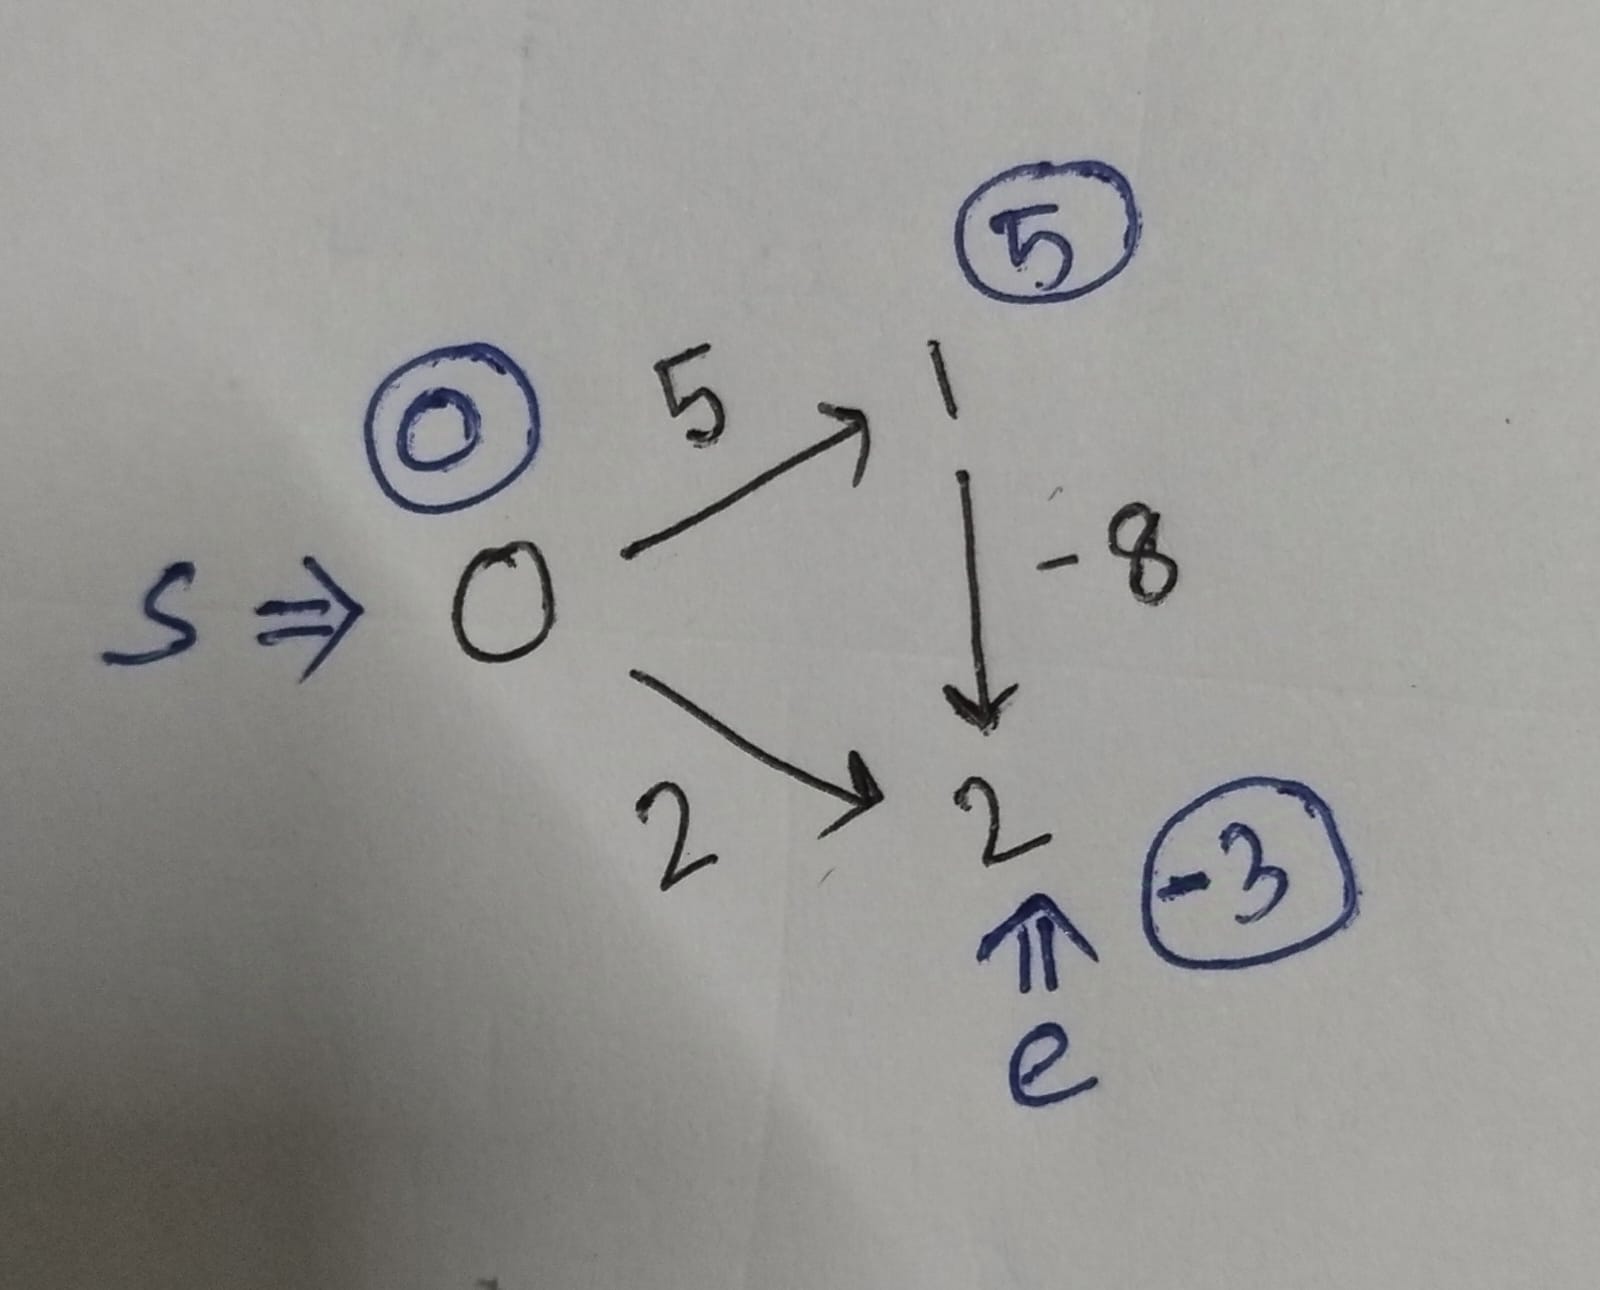 5
0
5
1
S ⇒ 0
-8
2
2
-3
⇑
e